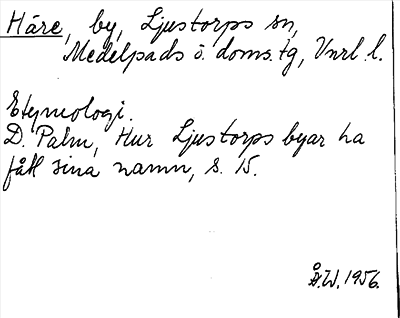 Häre, by, Ljustorps sn,
Medelpads ö. doms. tg, Vnrl. l.
Etymologi.
D. Palm, Hur Ljustorps byar ha
fått sina namn, s. 15.
Å.W. 1956.